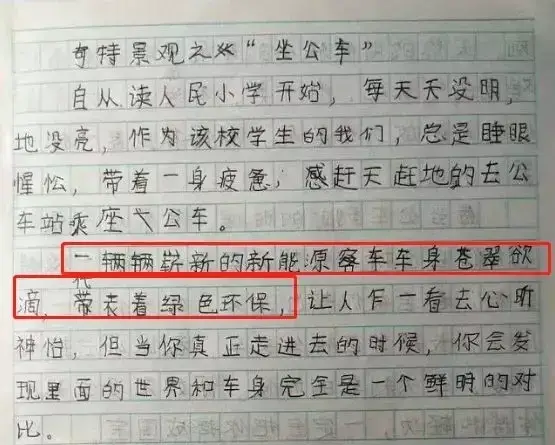 奇特景观之"坐公车"
自从读人民小学开始，每天天没明，
地没亮，作为该校学生的我们，总是睡眼
惺忪，带着一身疲惫，感赶天赶地的去公
车站乘座公车。
一辆辆崭新的新能源客车车身苍翠欲
滴，代表着绿色环保，让人乍一看去心旷
神怡，但当你真正走进去的时候，你会发
现里面的世界和车身完全是一个鲜明的对
比。